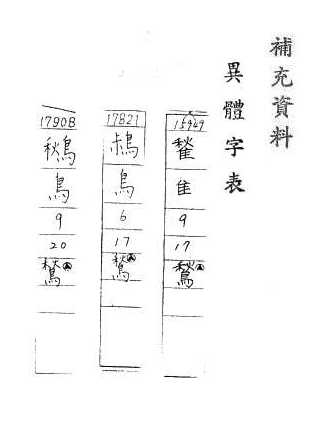 補充資料
異體字表
15949
隹
9
17
鶖
17821
鳥
6
17
鶖
17908
鳥
9
20
鶖